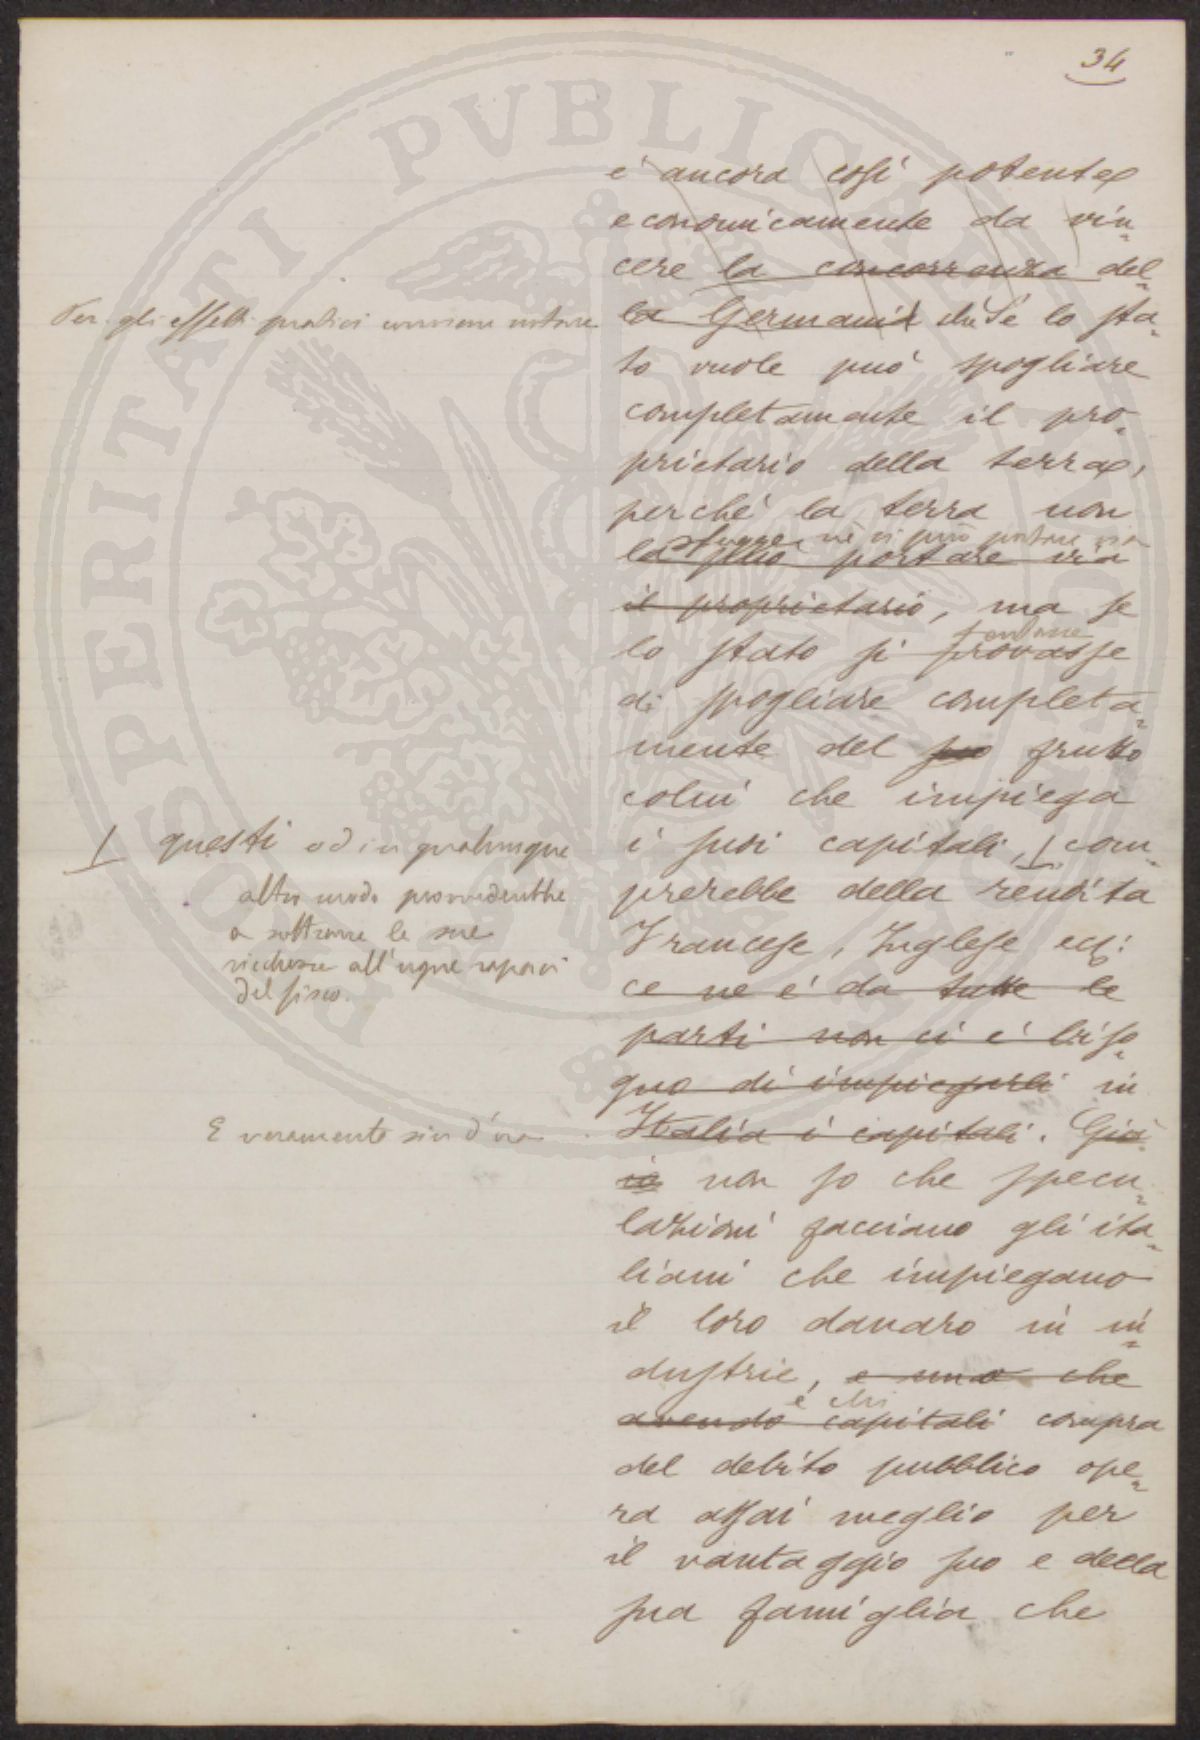 34
è ancora così potente
economicamente da vin-
cere la concorrenza del-
la Germania che Se lo sta-
to vuole può spogliare
completamente il pro-
prietario della terra,
perchè la terra non
sfugge, nè si può portare via
la può portare via
il proprietario, ma se
tentasse
lo stato si provasse
di spogliare completa-
mente del suo frutto
colui che impiega
i suoi capitali, com-
prerebbe della rendita
Francese, Inglese ecc:
ce ne è da tutte le
parti non ci è biso-
gno di impiegarli in
Italia i capitali. Già
io non so che specu-
lazioni facciano gli ita-
liani che impiegano
il loro danaro in in-
dustrie, e uno che
è chi
avendo capitali compra
del debito pubblico ope-
ra assai meglio per
il vantaggio suo e della
sua famiglia che
Per gli effetti pratici conviene notare
questi od in qualunque
altro modo provvederebbe
a sottrarre le sue
ricchezze all'ugne rapaci
del fisco.
E veramente sin d'ora
PROSPERITATI PVBLICAE